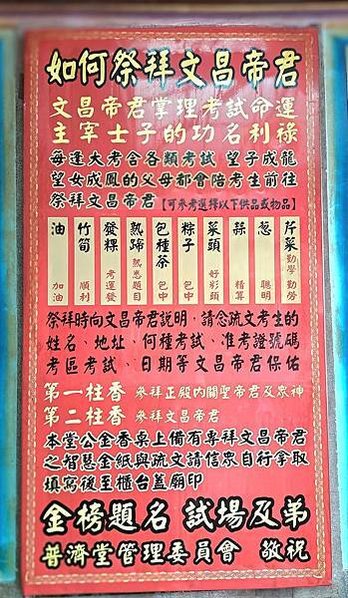 如何祭拜文昌帝君
文昌帝君掌理考試命運
主宰士子的功名利祿
每逢大考含各類考試 望子成龍
望女成鳳的父母都會陪考生前往
祭拜文昌帝君【可參考選擇以下供品或物品】
芹菜 勤學 勤勞
蔥 聰明
蒜 精算
菜頭 好彩頭
粽子 包中
包種茶 包中
熟蹄 熟悉題目
發粿 考運發
竹筍 順利
油 加油
祭拜時向文昌帝君說明、請唸疏文考生的
姓名、地址、何種考試、准考證號碼
考區考試、日期等文昌帝君保佑
第一柱香 參拜正殿內關聖帝君及眾神
第二柱香 參拜文昌帝君
本堂公金香桌上備有專拜文昌帝君
之智慧金紙與疏文請信眾自行拿取
填寫後至櫃台蓋廟印
金榜題名 試場及第
普濟堂管理委員會 敬祝